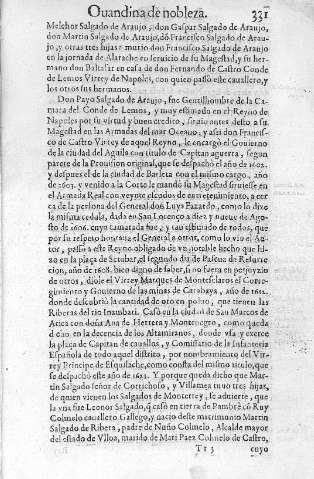 Ouandina de nobleza. 331
Melchor Salgado de Araujo, don Gaspar Salgado de Araujo,
don Martin Salgado de Araujo, dõ Francisco Salgado de Arau-
jo, y otras tres hijas: murio don Francisco Salgado de Araujo
en la jornada de Alarache en seruicio de su Magestad, y su her-
mano don Baltasar en casa de don Fernando de Castro Conde
de Lemos Virrey de Napoles, con quien passò este cauallero, y
los otros sus hermanos.
Don Payo Salgado de Araujo, fue Gentilhombre de la Ca-
mara del Conde de Lemos, y muy estimado en el Reyno de
Napoles por su virtud y buen credito, siruio antes desto a su
Magestad en las Armadas del mar Oceano, y assi don Francis-
co de Castro Virrey de aquel Reyno, le encargò el Gouierno
de la ciudad del Aguila con titulo de Capitan aguerra, segun
parece de la Prouision original, que se despachò el año de 1602.
y despues el de la ciudad de Barleta con el mismo cargo, año
de 1603. y venido a la Corte le mandò su Magestad siruiesse en
el Armada Real con veynte escudos de entretenimiento, a cer-
ca de la persona del General don Luys Fajardo, como lo dize
la misma cedula, dada en San Lorenço a diez y nueue de Agos-
to de 1606. cuyo camarada fue, y tan estimado de todos, que
por su respeto honraua el General a otros, como lo vio el Au-
tor, passò a este Reyno obligado de vn notable hecho que hi-
zo en la plaça de Setubar, el segundo dia de Pascua de Resurre-
cion, año de 1608. bien digno de saber, si no fuera en perjuyzio
de otros, diole el Virrey Marques de Montesclaros el Corre-
gimiento y Gouierno de las minas de Carabaya, año de 1612.
donde descubriò la cantidad de oro en poluo, que tienen las
Riberas del rio Inambati. Casò en la ciudad de San Marcos de
Arica con doña Ana de Herrera y Montenegro, como queda
dicho en la decencia de los Altamiranos, donde vsa y exerce
la plaça de Capitan de cauallos, y Comissario de la Infanteria
Española de todo aquel distrito, por nombramiento del Vir-
rey Principe de Esquilache, como consta del mismo titulo, que
se despachò este año de 1621. Y porque queda dicho que Mar-
tin Salgado señor de Corticholo, y Villamea tuuo tres hijas,
de quien vienen los Salgados de Monterrey, se aduierte, que
la vna fue Leonor Salgado, q̃ casò en tierra de Pambre cõ Ruy
Colmelo cauallero Gallego, y nacio deste matrimonio Martin
Salgado de Ribera, padre de Nuño Colmelo, Alcalde mayor
del estado de Vlloa, marido de Mari Paez Colmelo de Castro,
Tt 3 cuyo